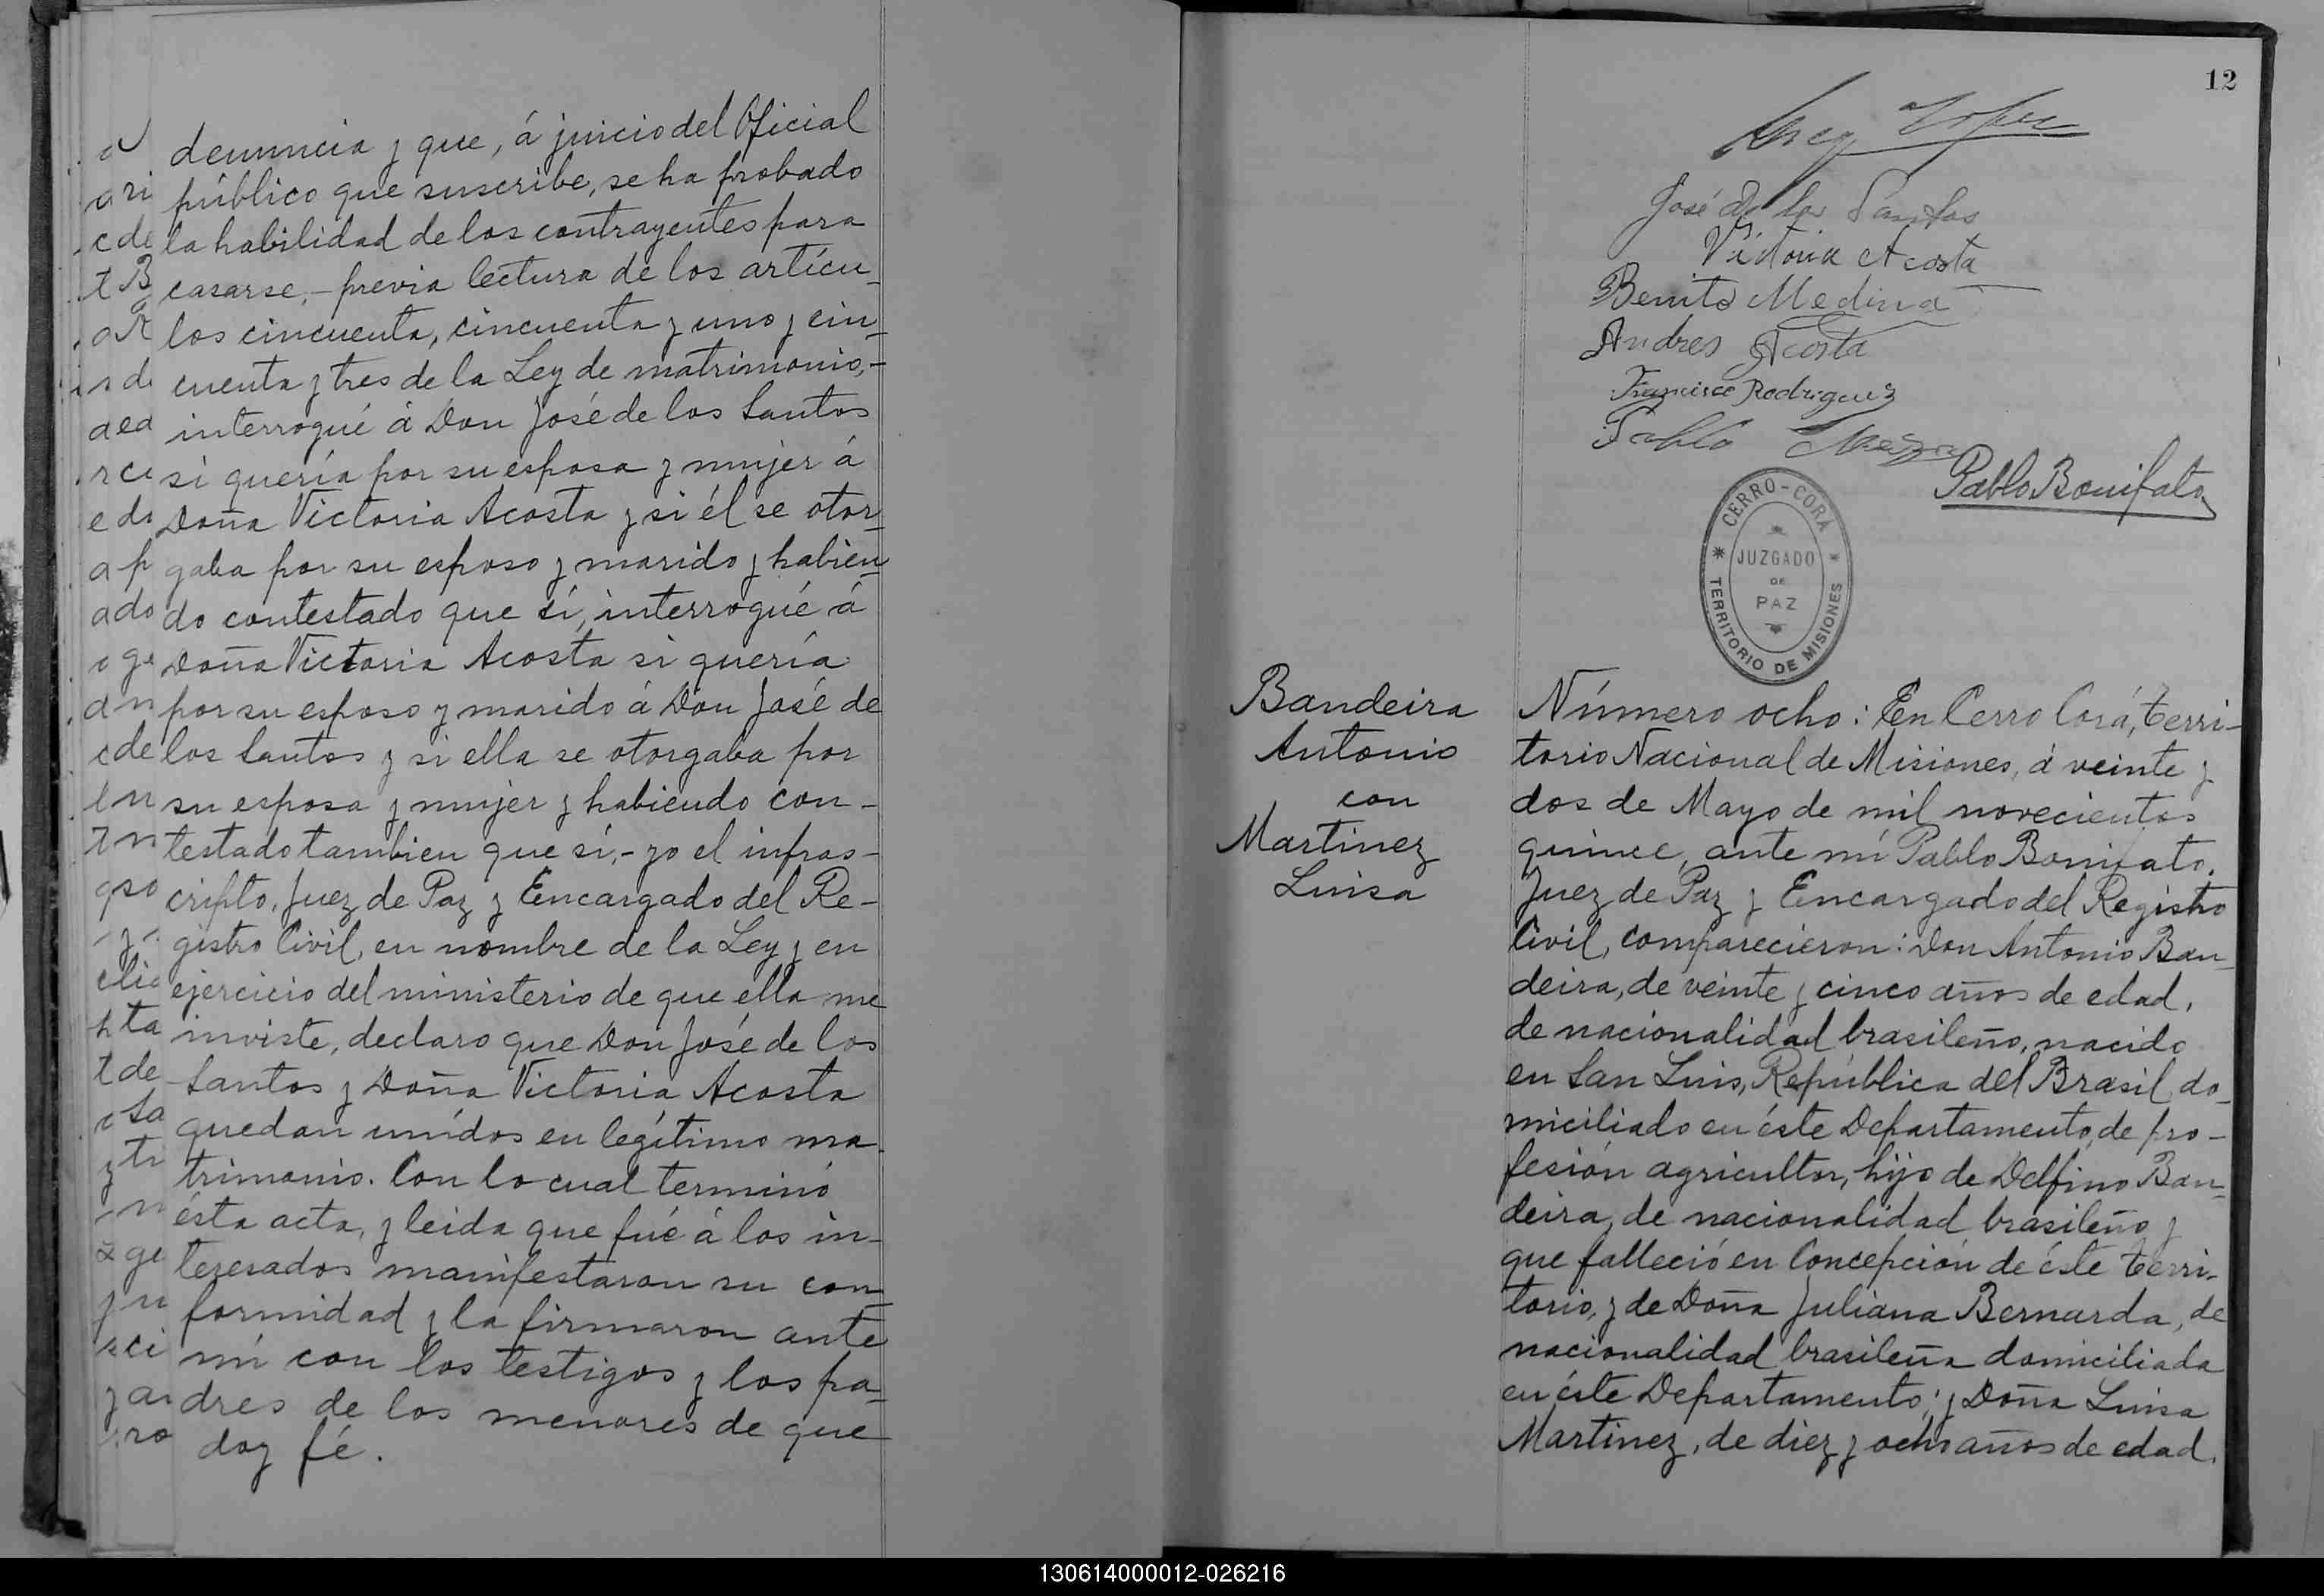 denuncia y que, á juicio del Oficial
público que suscribe, se ha probado
la habilidad de los contrayentes para
casarse, – previa lectura de los artícu-
los cincuenta, cincuenta y uno y cin-
cuenta y tres de la Ley de matrimonio, –
interrogué á Don José de los Santos
si quería por su esposa y mujer á
Doña Victoria Acosta y si él se otor-
gaba por su esposo y marido y habien-
do contestado que sí, interrogué á
Doña Victoria Acosta si quería
por su esposo y marido á Don José de
los Santos y si ella se otorgaba por
su esposa y mujer y habiendo con-
testado tambien que sí, – yo el infras-
cripto, Juez de Paz y Encargado del Re-
gistro Civil, en nombre de la Ley y en
ejercicio del ministerio de que ella me
inviste, declaro que Don José de los
Santos y Doña Victoria Acosta
quedan unídos en legítimo ma-
trimonio. Con lo cual terminó
ésta acta, y leida que fué á los in-
teresados manifestaron su con-
formidad y la firmaron ante
mí con los testigos y los pa-
dres de los menores de que
doy fé.
12
Lopez
José de los Santos
Victoria Acosta
Benito Medina
Andres Acosta
Francisco Rodriguez
Pablo
Pablo Bonifato
CERRO-CORÁ
JUZGADO
DE
PAZ
TERRITORIO DE MISIONES
Bandeira
Antonio
con
Martinez
Luisa
Número ocho: En Cerro Corá, terri-
torio Nacional de Misiones, á veinte y
dos de Mayo de mil novecientos
quince, ante mí Pablo Bonifato,
Juez de Paz y Encargado del Registro
Civil, comparecieron: Don Antonio Ban-
deira, de veinte y cinco años de edad,
de nacionalidad brasileño, nacido
en San Luis, República del Brasil, do-
miciliado en éste Departamento, de pro-
fesión agricultor, hijo de Delfino Ban-
deira, de nacionalidad brasileño y
que falleció en Concepción de éste terri-
torio, y de Doña Juliana Bernarda, de
nacionalidad brasileña domiciliada
en éste Departamento; y Doña Luisa
Martinez, de diez y ocho años de edad,
130614000012-026216